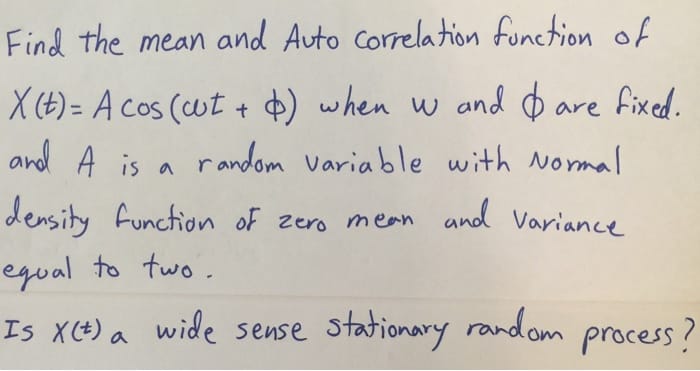 Find the mean and Auto correlation function of
X(t) = A cos (ωt + ϕ) when w and ϕ are fixed.
and A is a random variable with Normal
density function of zero mean and Variance
equal to two.
Is X(t) a wide sense stationary random process?